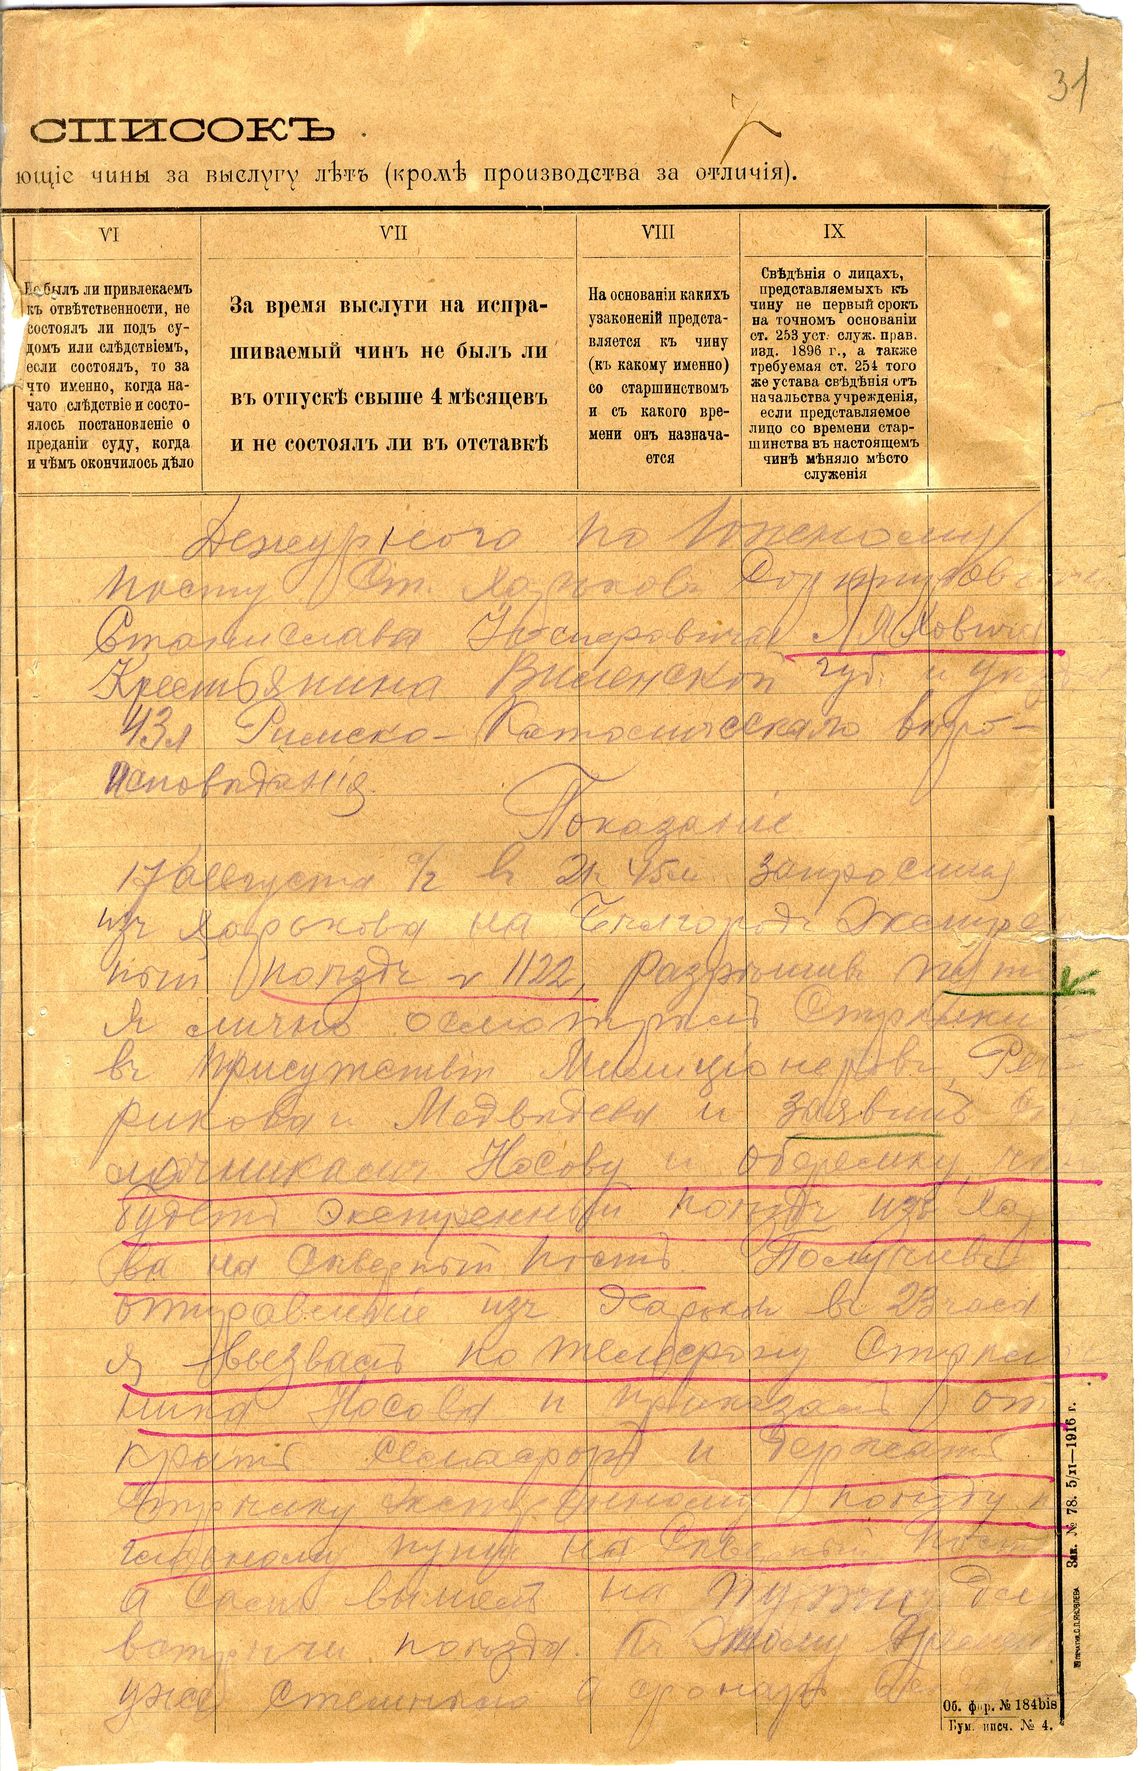 31
СПИСОКЪ
ющіе чины за выслугу лѣтъ (кромѣ производства за отличія).
VI
Не былъ ли привлекаемъ
къ отвѣтственности, не
состоялъ ли подъ су-
домъ или слѣдствіемъ,
если состоялъ, то за
что именно, когда на-
чато слѣдствіе и состо-
ялось постановленіе о
преданіи суду, когда
и чѣмъ окончилось дѣло
VII
За время выслуги на испра-
шиваемый чинъ не былъ ли
въ отпускѣ свыше 4 мѣсяцевъ
и не состоялъ ли въ отставкѣ
VIII
На основаніи какихъ
узаконеній предста-
вляется къ чину
(къ какому именно)
со старшинствомъ
и съ какого вре-
мени онъ назнача-
ется
IX
Свѣдѣнія о лицахъ,
представляемыхъ къ
чину не первый срокъ
на точномъ основаніи
ст. 253 уст. служ. прав.
изд. 1896 г., а также
требуемая ст. 254 того
же устава свѣдѣнія отъ
начальства учрежденія,
если представляемое
лицо со времени стар-
шинства въ настоящемъ
чинѣ мѣняло мѣсто
служенія
Дежурнаго по Южному
посту Ст. Харьковъ
Станислава Ляховича
Крестьянина Виленской губ. и уѣзда
43л Римско-Католическаго вѣро-
исповѣданія.
Показаніе
17 августа с/г въ 21ч 45м запросили
изъ Харькова на Бѣлгородъ Экстрен
ный поѣздъ № 1122, разрѣшивъ путь
я лично осмотрѣлъ стрѣлки
въ присутствіи Милиціонеровъ
рикова и Медвѣдева и заявилъ
Носову и
будетъ экстренный поѣздъ изъ Хар
ва на Сѣверный постъ. Получивъ
отправленіе изъ Харькова въ 23 часа
я вызвалъ по телефону Стрѣлоч
ника Носова и приказалъ от
крыть семафоръ и держать
стрѣлку экстренному поѣзду п
главному пути на Сѣверный постъ
а самъ вышелъ на путь для
встрѣчи поѣзда. Къ этому времени
уже стемнѣло а фонарь
Зак. № 78. 5/II—1916 г.
Об. фор. № 184bis
Бум. писч. № 4.